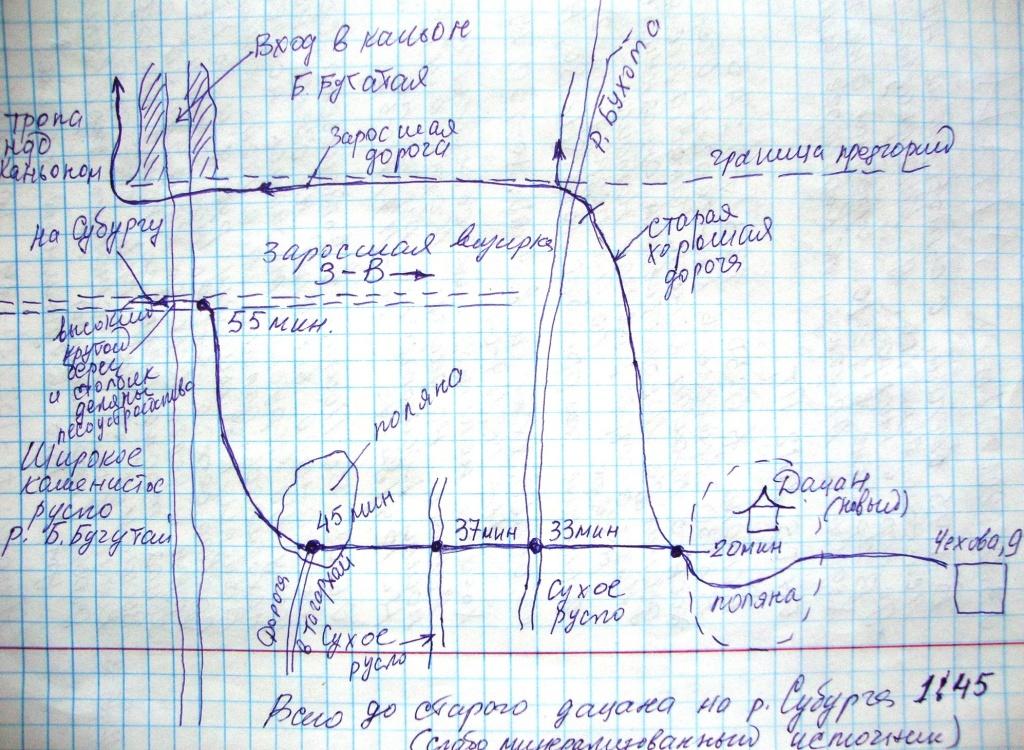 Вход в каньон
Б. Бугатая
тропа
над
каньоном
Заросшая
дорога
р. Бухота
граница предгорий
на Субургу
Заросшая визирка
З-В
старая
хорошая
дорога
55 мин.
высокий
крутой
берег
и столбик
деляны
лесоустройства
поляна
Широкое
каменистое
русло
р. Б. Бугутай
45 мин
37мин
33мин
20мин
Дацан
(новый)
Чехова, 9
поляна
Дорога
в Тагархай
Сухое
русло
Сухое
русло
Всего до старого дацана на р. Субурга 1:45
(слабо минерализованный источник)